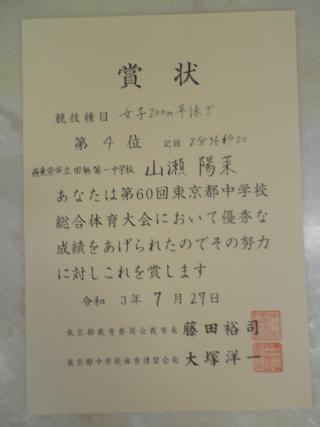 賞状
競技種目 女子200m平泳ぎ
第4位 記録 2分36秒20
西東京市立田無第一中学校 山瀬 陽菜
あなたは第60回東京都中学校
総合体育大会において優秀な
成績をあげられたのでその努力
に対しこれを賞します
令和 3年 7月27日
東京都教育委員会教育長 藤田裕司
東京都中学校体育連盟会長 大塚洋一